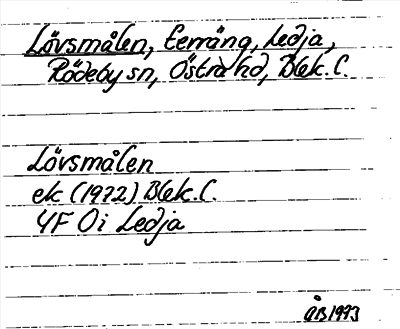 Lövsmålen, terräng, Ledja,
Rödeby sn, Östra hd, Blek. l.
Lövsmålen
ek (1972) Blek. l.
4F 0i Ledja
ÅB 1993